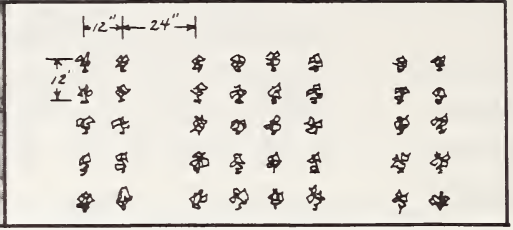 12" 24"
12'